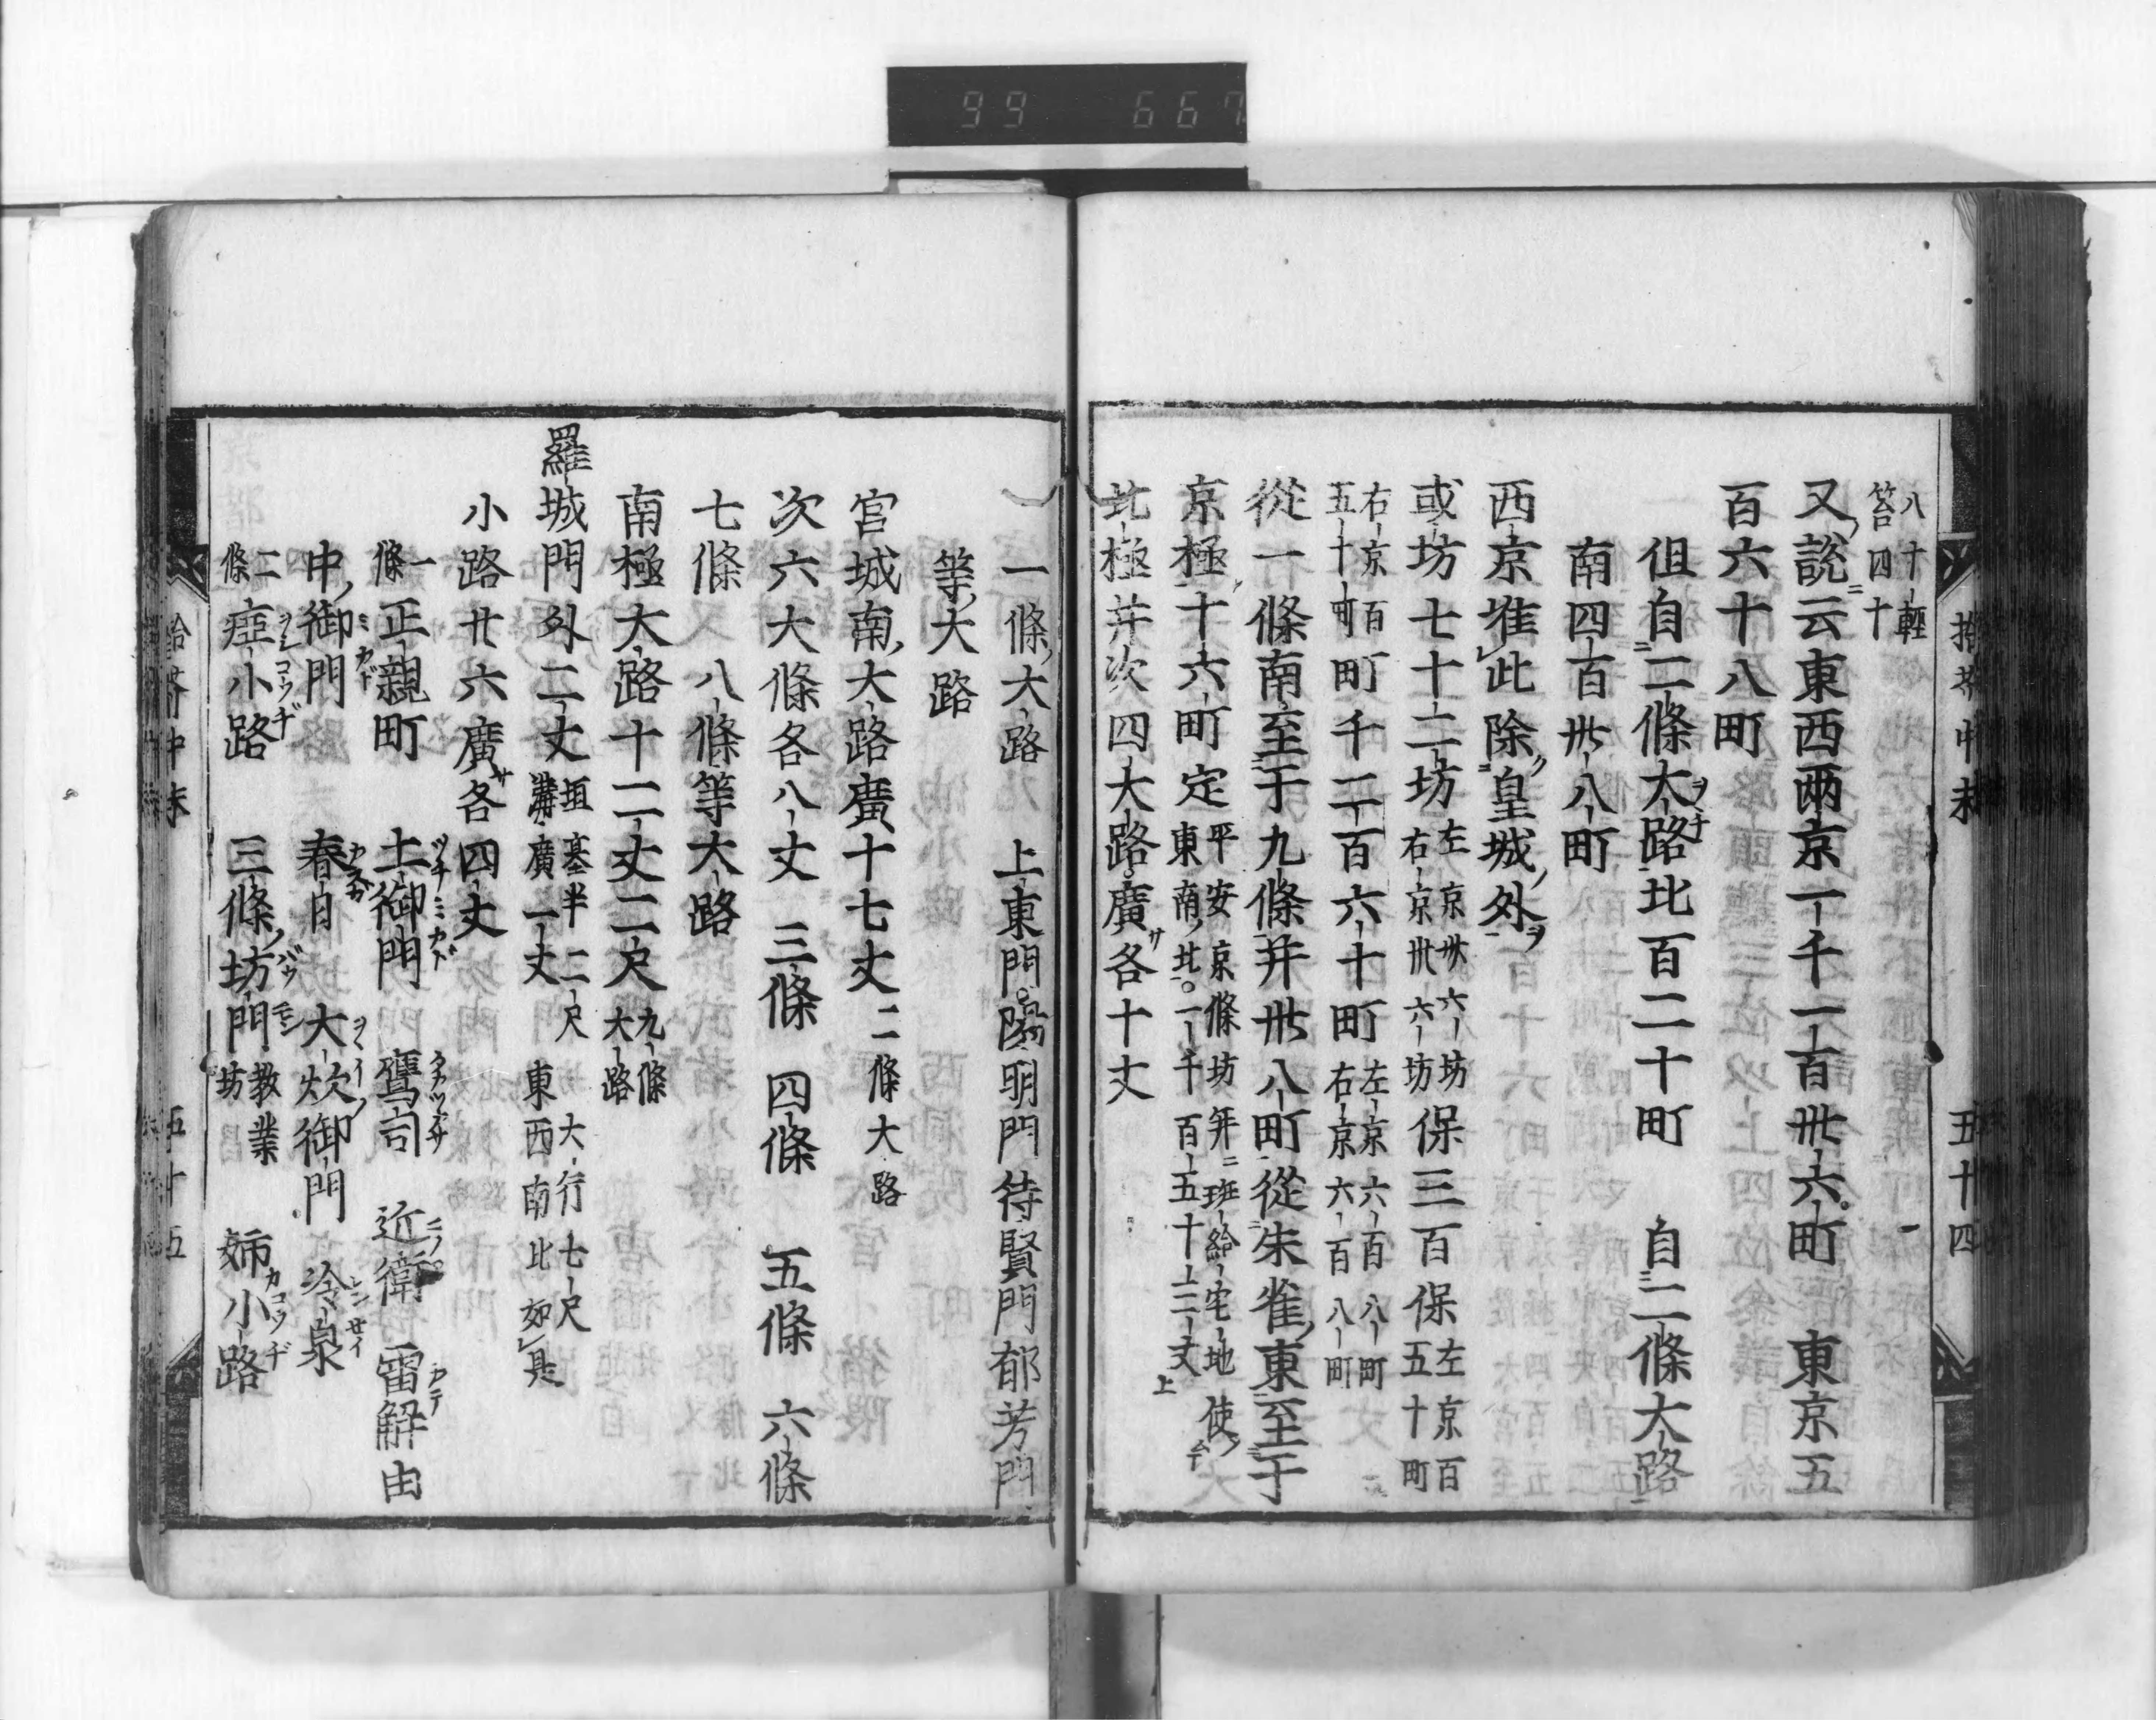 99 667
拾芥中末 五十四
八十輕
笞四十
又說云東西兩京一千一百卅六町 東京五
百六十八町
但自二條大路北百二十町 自二條大路
南四百卌八町
西京准此除皇城外
或坊七十二坊 左京卅六坊 右京卅六坊 保三百保 左京百五十町
右京百五十町 町千二百六十町 左京六百八町 右京六百八町
從一條南至于九條并卅八町從朱雀東至于
京極十六町定 平安京條坊并班給宅地使 東南北一千百五十二丈上
北極并次四大路廣各十丈
一條大路 上東門陽明門待賢門郁芳門
等大路
宮城南大路廣十七丈 二條大路
次六大條各八丈 三條 四條 五條 六條
七條 八條等大路
南極大路十二丈二尺 九條大路
羅城門外二丈 垣基半二尺 大行七尺 溝廣一丈 東西南北如具
小路廿六廣各四丈
一條 正親町 土御門 鷹司 近衛 一雷解由
中御門 春日 大炊御門 冷泉
二條 痖小路 三條坊門 教業坊 姉小路
拾芥中末 五十五